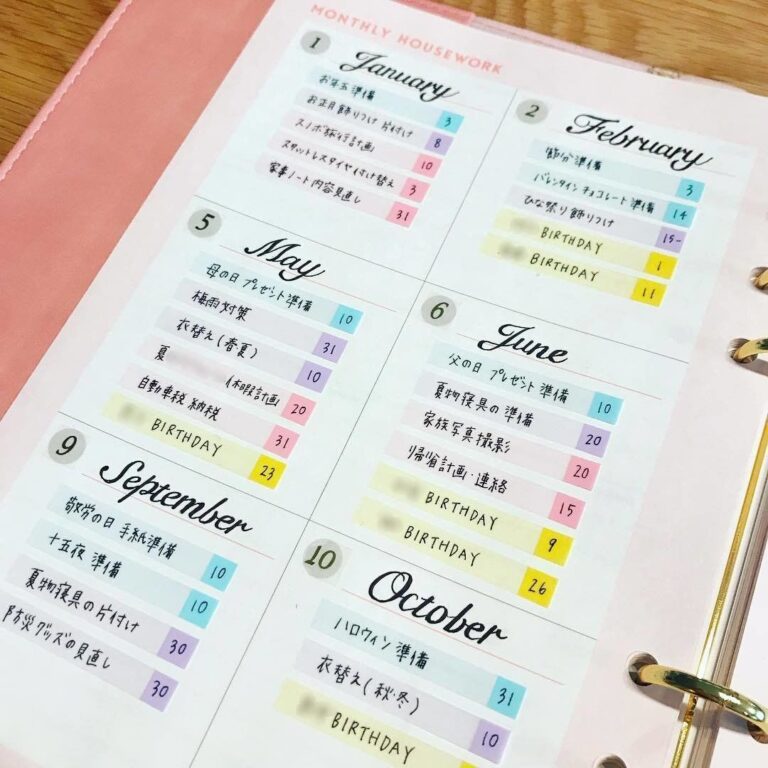 MONTHLY HOUSEWORK
1
January
お年玉準備 3
お正月飾りつけ 片付け 8
スノボ旅行計画 10
スタットレスタイヤ付け替え 3
家事ノート内容見直し 31
2
February
節分準備 3
バレンタインチョコレート準備 14
ひな祭り飾りつけ 15-
BIRTHDAY 1
BIRTHDAY 11
5
May
母の日プレゼント準備 10
梅雨対策 31
衣替え(春夏) 10
夏 休暇計画 20
自動車税納税 31
BIRTHDAY 23
6
June
父の日プレゼント準備 10
夏物寝具の準備 20
家族写真撮影 20
帰省計画・連絡 15
BIRTHDAY 9
BIRTHDAY 26
9
September
敬労の日 手紙準備 10
十五夜 準備 10
夏物寝具の片付け 30
防災グッズの見直し 30
10
October
ハロウィン準備 31
衣替え(秋・冬) 10
BIRTHDAY